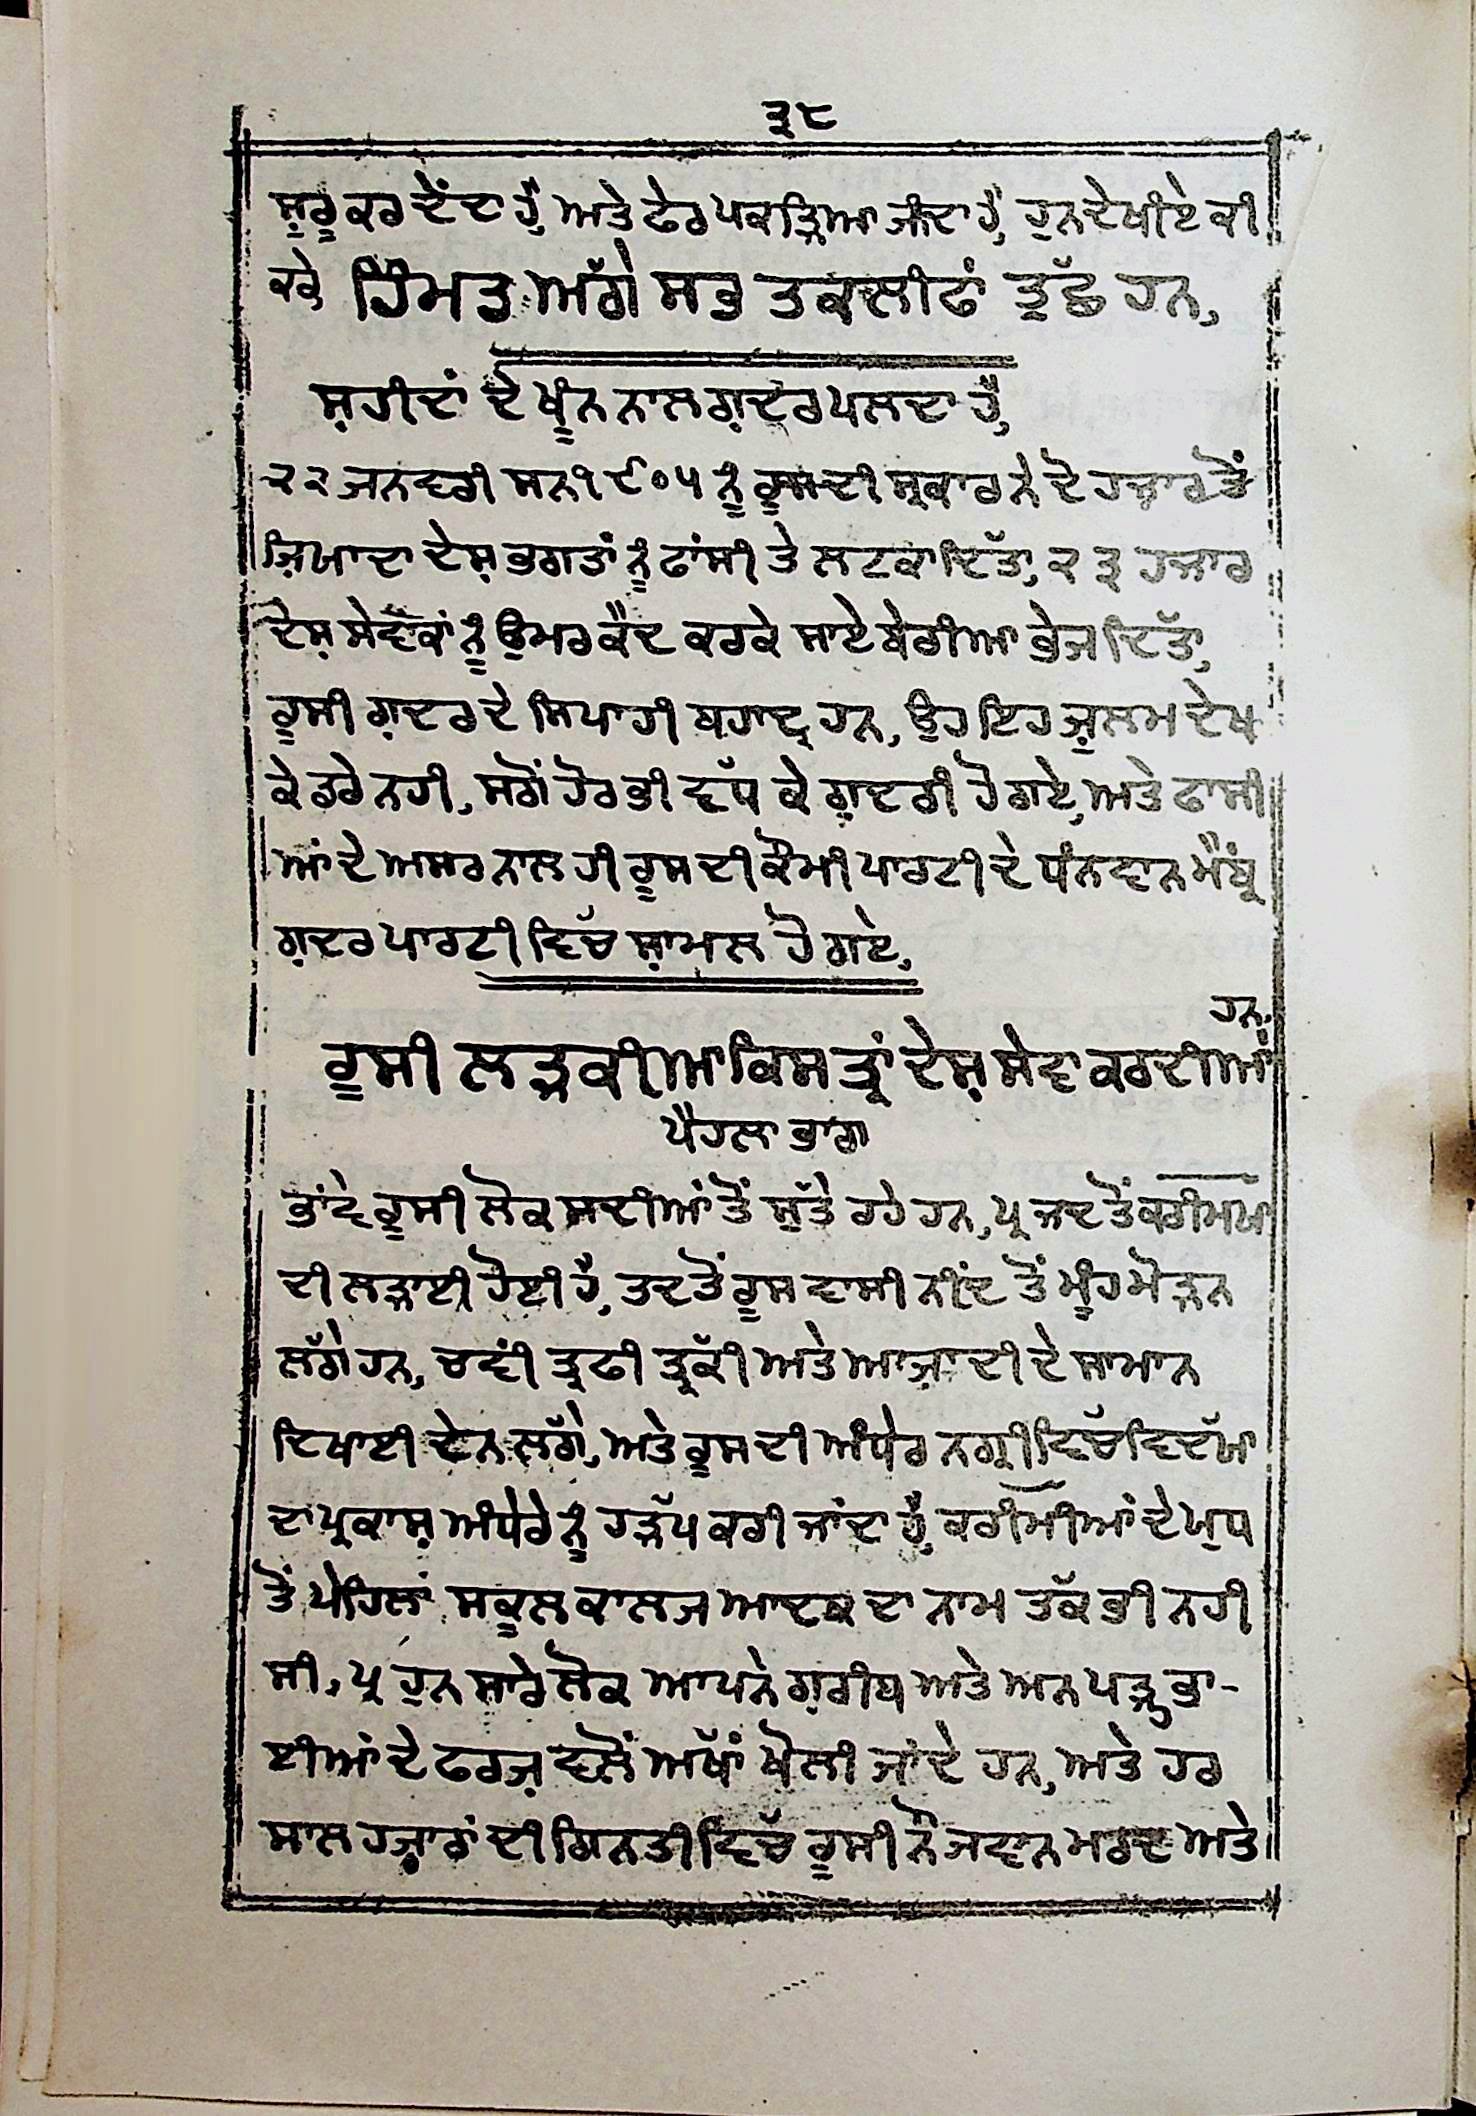 ੩੮
ਸ਼ੁਰੂ ਕਰ ਦੇਂਦਾ ਹੈ, ਅਤੇ ਫੇਰ ਪਕੜਿਆ ਜਾਂਦਾ ਹੈ, ਹੁਨ ਦੇਖੀਏ ਕੀ
ਕਰੇ ਹਿੰਮਤ ਅੱਗੇ ਸਭ ਤਕਲੀਫਾਂ ਤੁੱਛ ਹਨ,
ਸ਼ਹੀਦਾਂ ਦੇ ਖੂੰਨ ਨਾਲ ਗ਼ਦਰ ਪਲਦਾ ਹੈ,
੨੨ ਜਨਵਰੀ ਸਨ ੧੯੦੫ ਨੂੰ ਰੂਸ ਦੀ ਸ੍ਰਕਾਰ ਨੇ ਦੋ ਹਜ਼ਾਰ ਤੋਂ
ਜ਼ਿਆਦਾ ਦੇਸ਼ ਭਗਤਾਂ ਨੂੰ ਫਾਂਸੀ ਤੇ ਲਟਕਾ ਦਿੱਤਾ, ੨੩ ਹਜ਼ਾਰ
ਦੇਸ਼ ਸੇਵਕਾਂ ਨੂੰ ਉਮਰ ਕੈਦ ਕਰਕੇ ਸਾਏਬੇਰੀਆ ਭੇਜ ਦਿੱਤਾ,
ਰੂਸੀ ਗ਼ਦਰ ਦੇ ਸਿਪਾਹੀ ਬਹਾਦ੍ਰ ਹਨ, ਉਹ ਇਹ ਜ਼ੁਲਮ ਦੇਖ
ਕੇ ਡਰੇ ਨਹੀ, ਸਗੋਂ ਹੋਰ ਭੀ ਵੱਧ ਕੇ ਗ਼ਦਰੀ ਹੋ ਗਏ, ਅਤੇ ਫਾਸੀ
ਆਂ ਦੇ ਅਸਰ ਨਾਲ ਹੀ ਰੂਸ ਦੀ ਕੌਮੀ ਪਾਰਟੀ ਦੇ ਧੰਨਵਾਨ ਮੈਂਬ੍ਰ
ਗ਼ਦਰ ਪਾਰਟੀ ਵਿੱਚ ਸ਼ਾਮਲ ਹੋ ਗਏ,
ਹਨ,
ਰੂਸੀ ਲੜਕੀਆ ਕਿਸ ਤ੍ਰਾਂ ਦੇਸ਼ ਸੇਵਾ ਕਰਦੀਆਂ
ਪੈਹਲਾ ਭਾਗ
ਭਾਂਵੇ ਰੂਸੀ ਲੋਕ ਸਦੀਆਂ ਤੋਂ ਸੁੱਤੇ ਰਹੇ ਹਨ, ਪ੍ਰ ਜਦ ਤੋਂ ਕਰੀਮਆ
ਦੀ ਲੜਾਈ ਹੋਈ ਹੈ, ਤਦ ਤੋਂ ਰੂਸ ਵਾਸੀ ਨੀਂਦ ਤੋਂ ਮੂੰਹ ਮੋੜਨ
ਲੱਗੇ ਹਨ, ਚਵੀਂ ਤ੍ਰਫੀ ਤ੍ਰੱਕੀ ਅਤੇ ਆਜ਼ਾਦੀ ਦੇ ਸਾਮਾਨ
ਦਿਖਾਈ ਦੇਨ ਲੱਗੇ, ਅਤੇ ਰੂਸ ਦੀ ਅੰਧੇਰ ਨਗ੍ਰੀ ਵਿੱਚ ਵਿਦੱਆ
ਦਾ ਪ੍ਰਕਾਸ਼ ਅੰਧੇਰੇ ਨੂੰ ਹੜੱਪ ਕਰੀ ਜਾਂਦਾ ਹੈ, ਕਰੀਮੀਆਂ ਦੇ ਯੁਧ
ਤੋਂ ਪੇਹਿਲਾਂ ਸਕੂਲ ਕਾਲਜ ਆਦਕ ਦਾ ਨਾਮ ਤੱਕ ਭੀ ਨਹੀ
ਸੀ, ਪ੍ਰ ਹੁਨ ਸਾਰੇ ਲੋਕ ਆਪਨੇ ਗ਼ਰੀਬ ਅਤੇ ਅਨਪੜ੍ਹ ਭਾ-
ਈਆਂ ਦੇ ਫਰਜ਼ ਵਲੋਂ ਅੱਖਾਂ ਖੋਲੀ ਜਾਂਦੇ ਹਨ, ਅਤੇ ਹਰ
ਸਾਲ ਹਜ਼ਾਰਾਂ ਦੀ ਗਿਨਤੀ ਵਿੱਚ ਰੂਸੀ ਨੌਜਵਾਨ ਮਰਦ ਅਤੇ